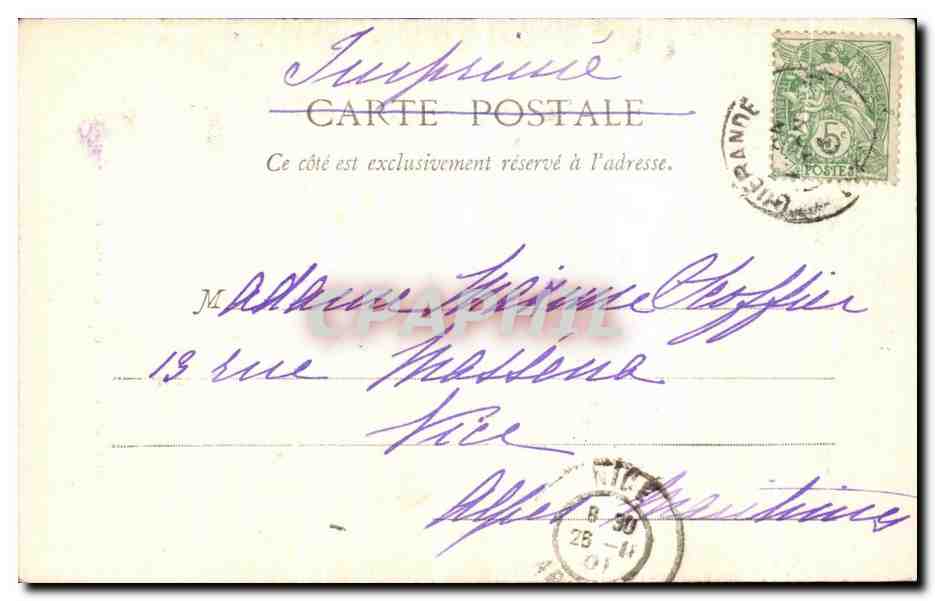 Imprimé
CARTE POSTALE
Ce côté est exclusivement réservé à l'adresse.
5c
POSTES
GUÉRANDE
Madame Maxime Choffier
CPAPHIL
13 rue Masséna
Nice
Alpes Maritimes
NICE
8-30
26-11
01